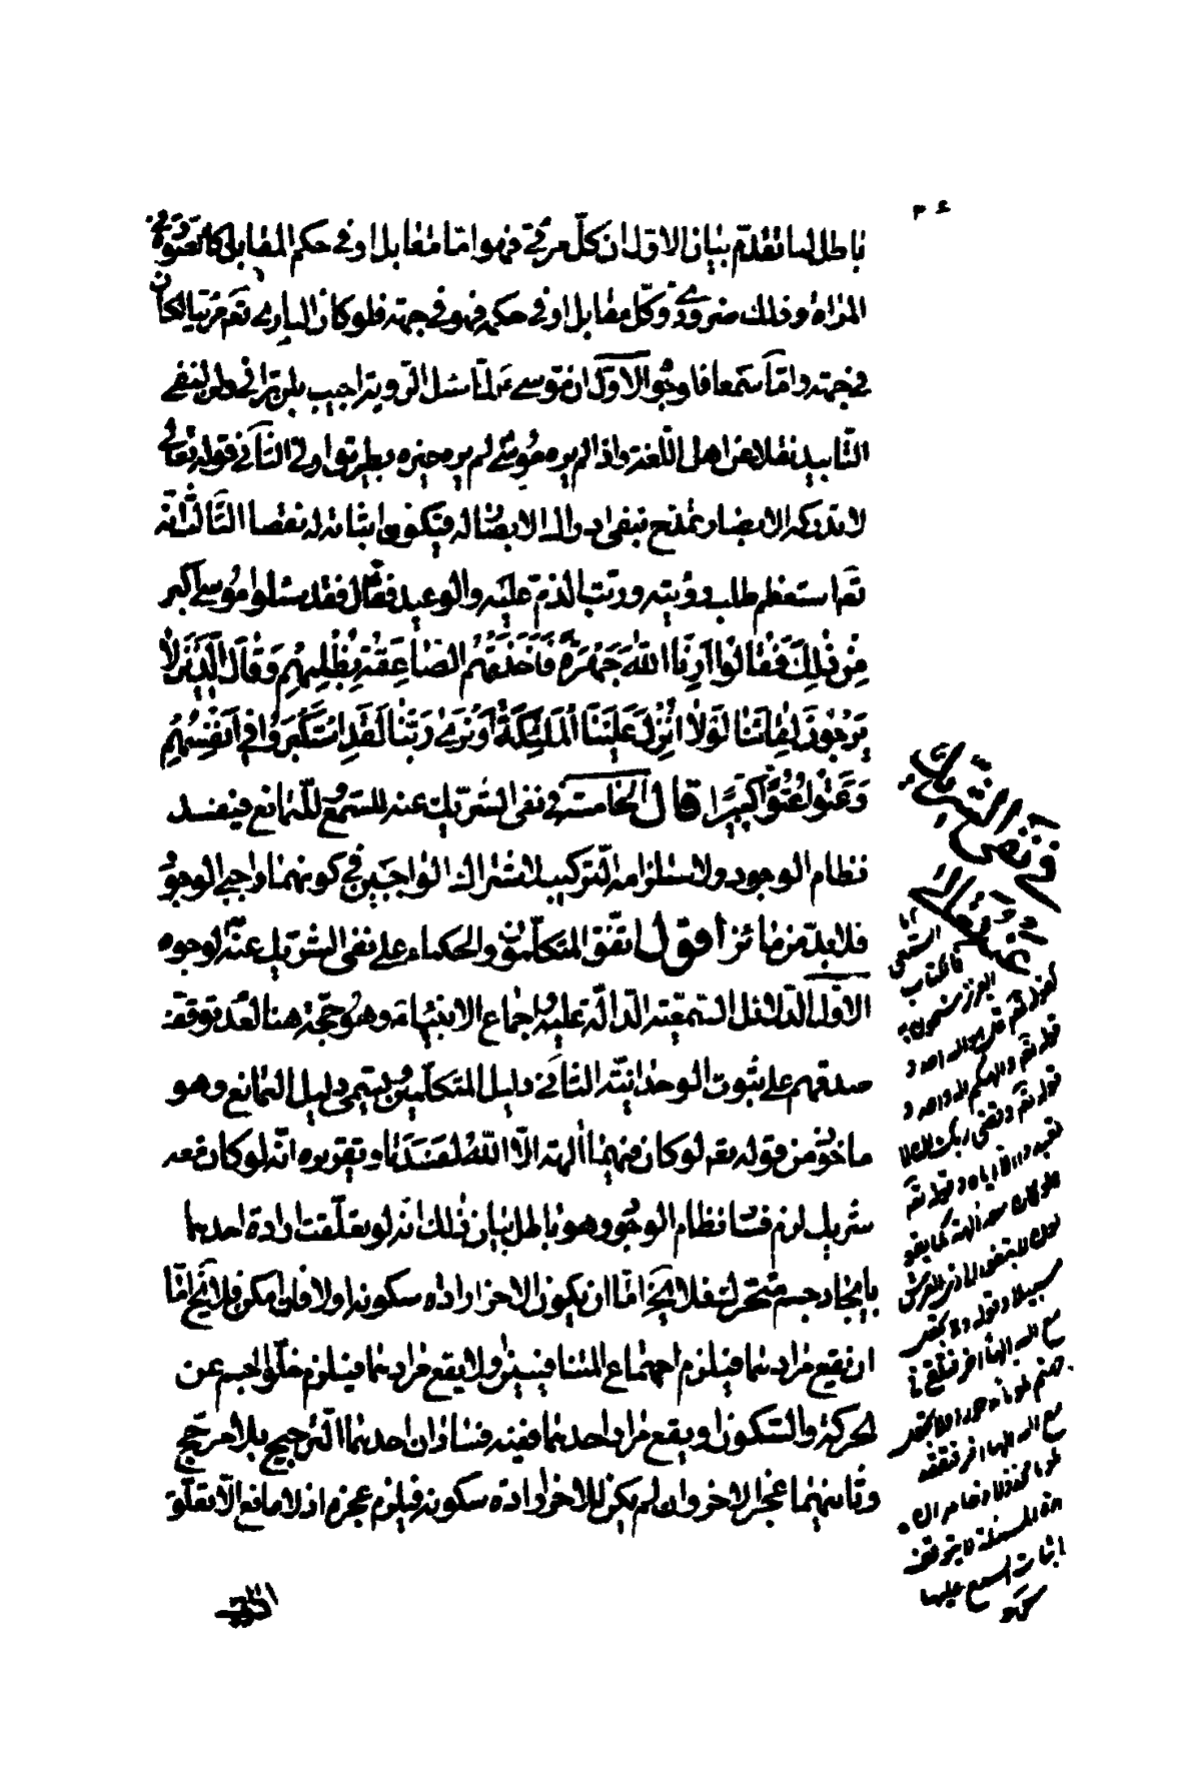 ٤٦
باطل لما تقدم بيان الاول ان كل مرئي فهو اما مقابل او في حكم المقابل كالصورة في
المرآة وذلك ضروري وكل مقابل او في حكمه فهو في جهة فلو كان الباري تعم مرئيا لكان
في جهة واما سمعا فلوجوه الاول ان موسى ع لما سئل الرؤية اجيب بلن تراني ولن لنفي
التابيد نقلا عن اهل اللغة واذا لم يره موسى لم يره غيره بطريق اولى الثاني قوله تعالى
لا تدركه الابصار تمدح بنفي ادراك الابصار له فيكون اثباته له نقصا الثالث انه
تعم استعظم طلب رؤيته ورتب الذم عليه والوعيد فقال فقد سئلوا موسى اكبر
مِنْ ذٰلِكَ فَقٰالُوا اَرِنَا اللّٰهَ جَهْرَةً فَاَخَذَتْهُمُ الصّٰاعِقَةُ بِظُلْمِهِمْ وَقٰالَ الَّذِينَ لاٰ
يَرْجُونَ لِقٰائَنٰا لَوْلاٰ اُنْزِلَ عَلَيْنَا الْمَلٰئِكَةُ اَوْ نَرىٰ رَبَّنٰا لَقَدِ اسْتَكْبَرُوا فِي اَنْفُسِهِمْ
وَعَتَوْا عُتُوًّا كَبِيرًا قال الخامسة في نفي الشريك عنه للسمع وللتمانع فيفسد
نظام الوجود ولاستلزامه التركيب لاشتراك الواجبين في كونهما واجبي الوجود
فلا بد من مائز اقول اتفق المتكلمون والحكماء على نفي الشريك عنه لوجوه
الاول الدلائل السمعية الدالة عليه واجماع الانبياء وهو حجة هنا لعدم توقف
صدقهم على ثبوت الوحدانية الثاني دليل المتكلمين يسمى دليل التمانع وهو
ماخوذ من قوله تعم لو كان فيهما الهة الا الله لفسدتا وتقريره انه لو كان معه
شريك لزم فساد نظام الوجود وهو باطل بيان ذلك انه لو تعلقت ارادة احدهما
بايجاد جسم متحرك فلا يخ اما ان يكون للاخر ارادة سكونه اولا فان امكن فلا يخ اما
ان يقع مرادهما فيلزم اجتماع المتنافيين او لا يقع مرادهما فيلزم خلو الجسم عن
الحركة والسكون او يقع مراد احدهما ففيه فسادان احدهما الترجيح بلا مرجح
وثانيهما عجز الاخر وان لم يكن للاخر ارادة سكونه فيلزم عجزه اذ لا مانع الا تعلق
في نفي الشريك
عنه تعالى
اما السمعي
فالكتاب
العزيز مشحون به
كقوله تعم قل هو الله احد و
قوله تعم والهكم اله واحد و
قوله تعم وقضى ربك ان لا
تعبدوا الا اياه وقوله تعم
لو كان معه آلهة كما يقو
لون اذا لابتغوا الى ذي العرش
سبيلا وقوله ولا تجعل
مع الله الها آخر فتلقى في
جهنم ملوما مدحورا ولا تجعل
مع الله الها آخر فتقعد
هذه المسئلة لا يتوقف
اثبات السمع عليها